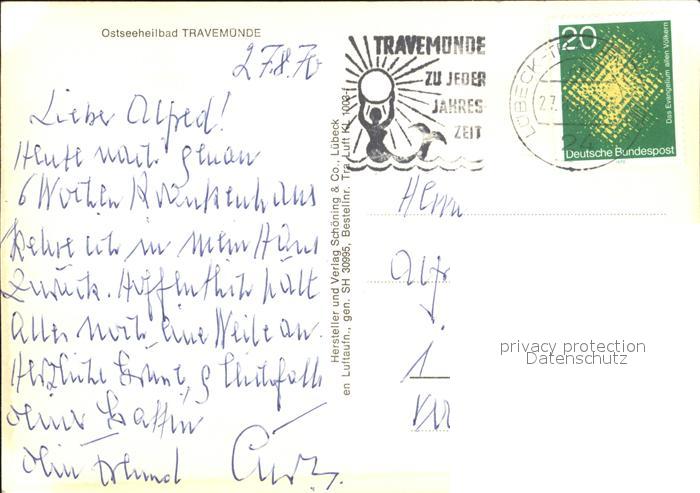 Ostseeheilbad TRAVEMÜNDE
27.8.70
Lieber Alfred!
Heute nach genau
6 Wochen Krankenhaus
kehre ich in mein Haus
zurück. Hoffentlich hält
alles noch eine Weile an.
Herzliche Grüße, gleichfalls
deiner Gattin
dein Freund
Hersteller und Verlag Schöning & Co., Lübeck
en Luftaufn., gen. SH 30995, Bestellnr. Tra. Luft KL 1003-f
TRAVEMÜNDE
ZU JEDER
JAHRES-
ZEIT
LÜBECK-T
27.
24
20
Das Evangelium allen Völkern
Deutsche Bundespost
1970
Herrn
Alfr
1
privacy protection
Datenschutz